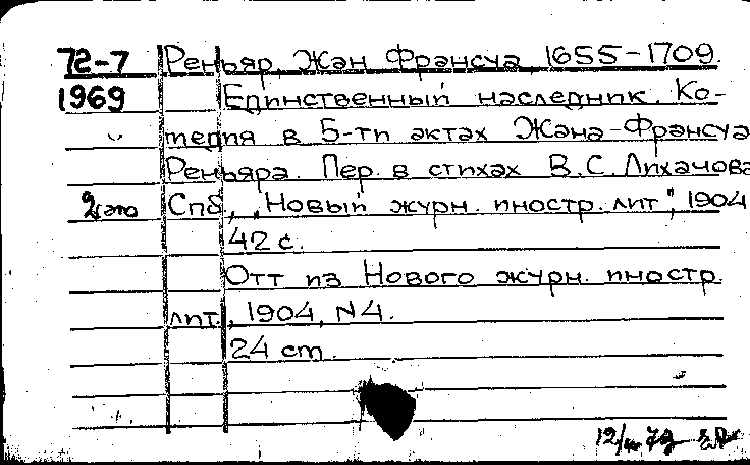 72-7 Реньяр, Жан Франсуа, 1655-1709.
1969 Единственный наследник. Ко-
медия в 5-ти актах Жана-Франсуа
Реньяра. Пер. в стихах В.С. Лихачова
Спб, „Новый журн. иностр. лит", 1904
42 с.
Отт из Нового журн. иностр.
лит., 1904, N4.
24 cm.
12/ 72